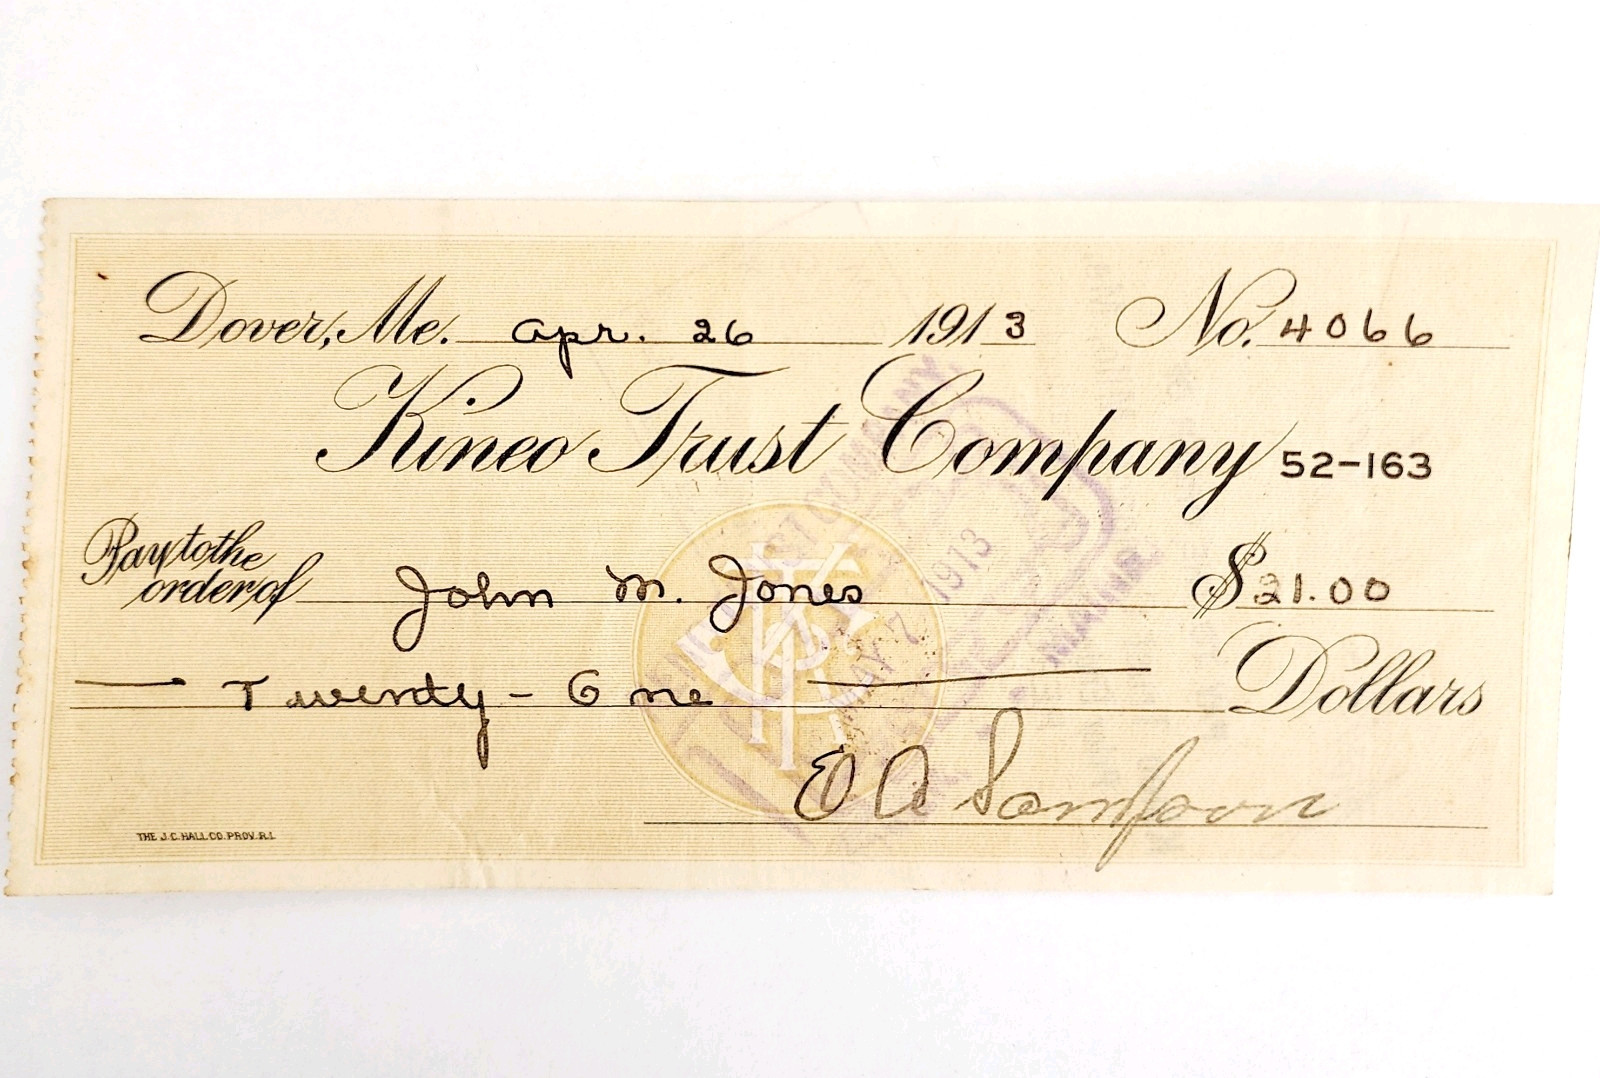 Dover, Me. Apr. 26 1913 No. 4066
Kineo Trust Company 52-163
Pay to the
order of John M. Jones $ 21.00
Twenty-One Dollars
E A Sampson
THE J.C. HALL CO. PROV. R.I.
COMPANY,
MAY 7 1913
MAINE